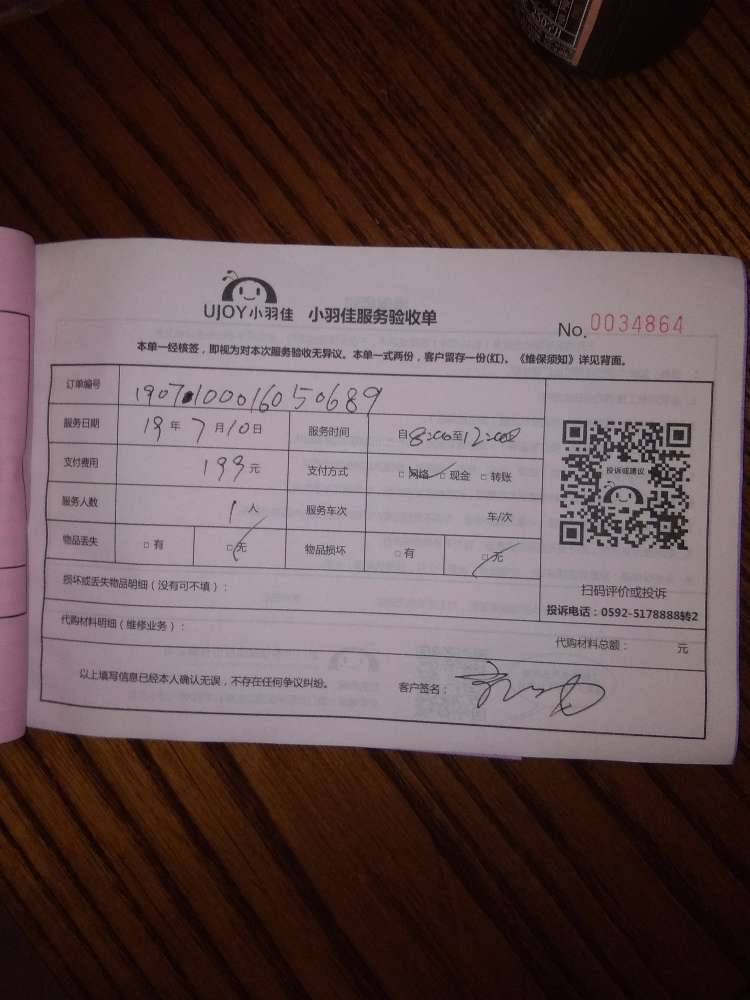 UJOY小羽佳 小羽佳服务验收单
No. 0034864
本单一经核签，即视为对本次服务验收无异议。本单一式两份，客户留存一份(红)、《维保须知》详见背面。
订单编号 1907100016050689
服务日期 19年7月10日 服务时间 自8:00至12:00
支付费用 199元 支付方式 □网络 □现金 □转账
服务人数 1人 服务车次 车/次
物品丢失 □有 □无 物品损坏 □有 □无
投诉或建议
扫码评价或投诉
投诉电话：0592-5178888转2
损坏或丢失物品明细（没有可不填）：
代购材料明细（维修业务）： 代购材料总额： 元
以上填写信息已经本人确认无误，不存在任何争议纠纷。 客户签名：